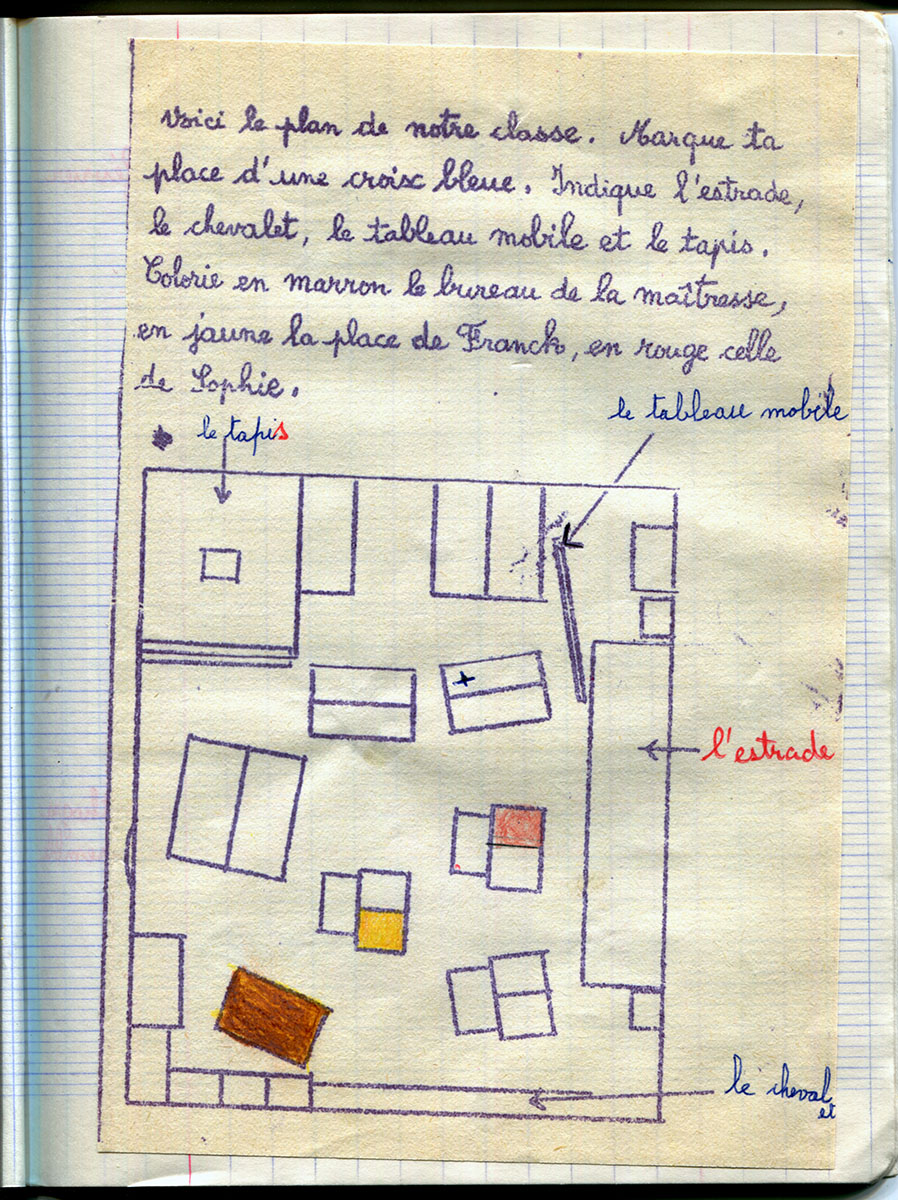 Voici le plan de notre classe. Marque ta
place d'une croix bleue. Indique l'estrade,
le chevalet, le tableau mobile et le tapis.
Colorie en marron le bureau de la maîtresse,
en jaune la place de Franck, en rouge celle
de Sophie.
le tableau mobile
le tapis
l'estrade
le cheval
et